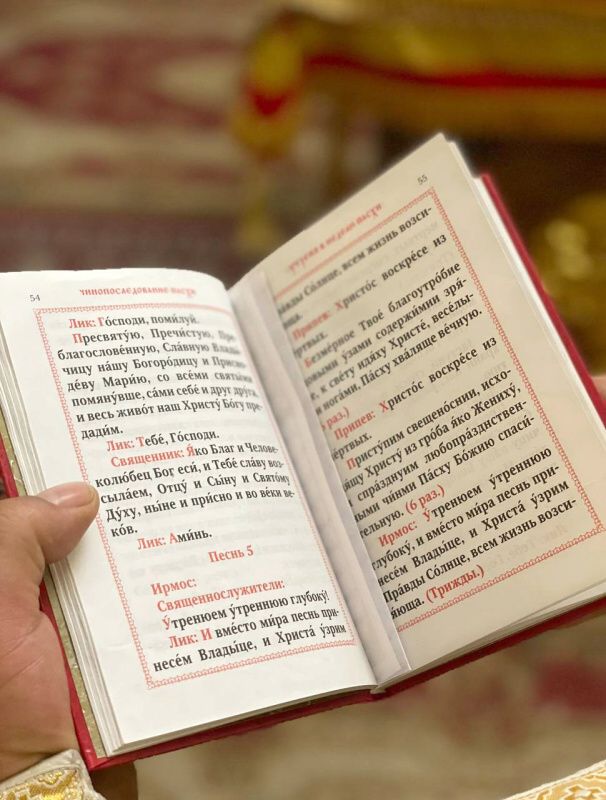 54
ЧИНОПОСЛЕДОВАНИЕ ПАСХИ
Лик: Го́споди, поми́луй.
Пресвяту́ю, Пречи́стую, Пре-
благослове́нную, Сла́вную Влады́-
чицу на́шу Богоро́дицу и Присно-
де́ву Мари́ю, со все́ми святы́ми
помяну́вше, са́ми себе́ и друг дру́га,
и весь живо́т наш Христу́ Бо́гу пре-
дади́м.
Лик: Тебе́, Го́споди.
Священник: Я́ко Благ и Челове-
колю́бец Бог еси́, и Тебе́ сла́ву воз-
сыла́ем, Отцу́ и Сы́ну и Свято́му
Ду́ху, ны́не и при́сно и во ве́ки ве-
ко́в.
Лик: Ами́нь.
Песнь 5
Ирмос:
Священнослужители:
У́тренюем у́треннюю глубоку́!
Лик: И вме́сто ми́ра песнь при-
несе́м Влады́це, и Христа́ у́зрим
55
В НЕДЕЛЮ ПАСХИ
Со́лнце, всем жизнь возси-
Припев: Христо́с воскре́се из
Безме́рное Твое́ благоутро́бие
у́зами содержи́ми зря́-
к све́ту идя́ху Христе́, весе́лы-
нога́ми, Па́сху хва́ляще ве́чную.
раз.)
Припев: Христо́с воскре́се из
Присту́пим свещено́снии, исхо-
Христу́ из гро́ба я́ко Жениху́,
спра́зднуим любопра́зднствен-
чи́нми Па́сху Бо́жию спаси́-
тельную. (6 раз.)
Ирмос: У́тренюем у́треннюю
глубоку́, и вме́сто ми́ра песнь при-
несе́м Влады́це, и Христа́ у́зрим
Пра́вды Со́лнце, всем жизнь возси-
я́юща. (Трижды.)